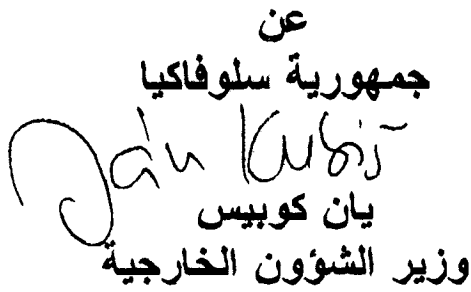 عن
جمهورية سلوفاكيا
Ján Kubiš
يان كوبيس
وزير الشؤون الخارجية